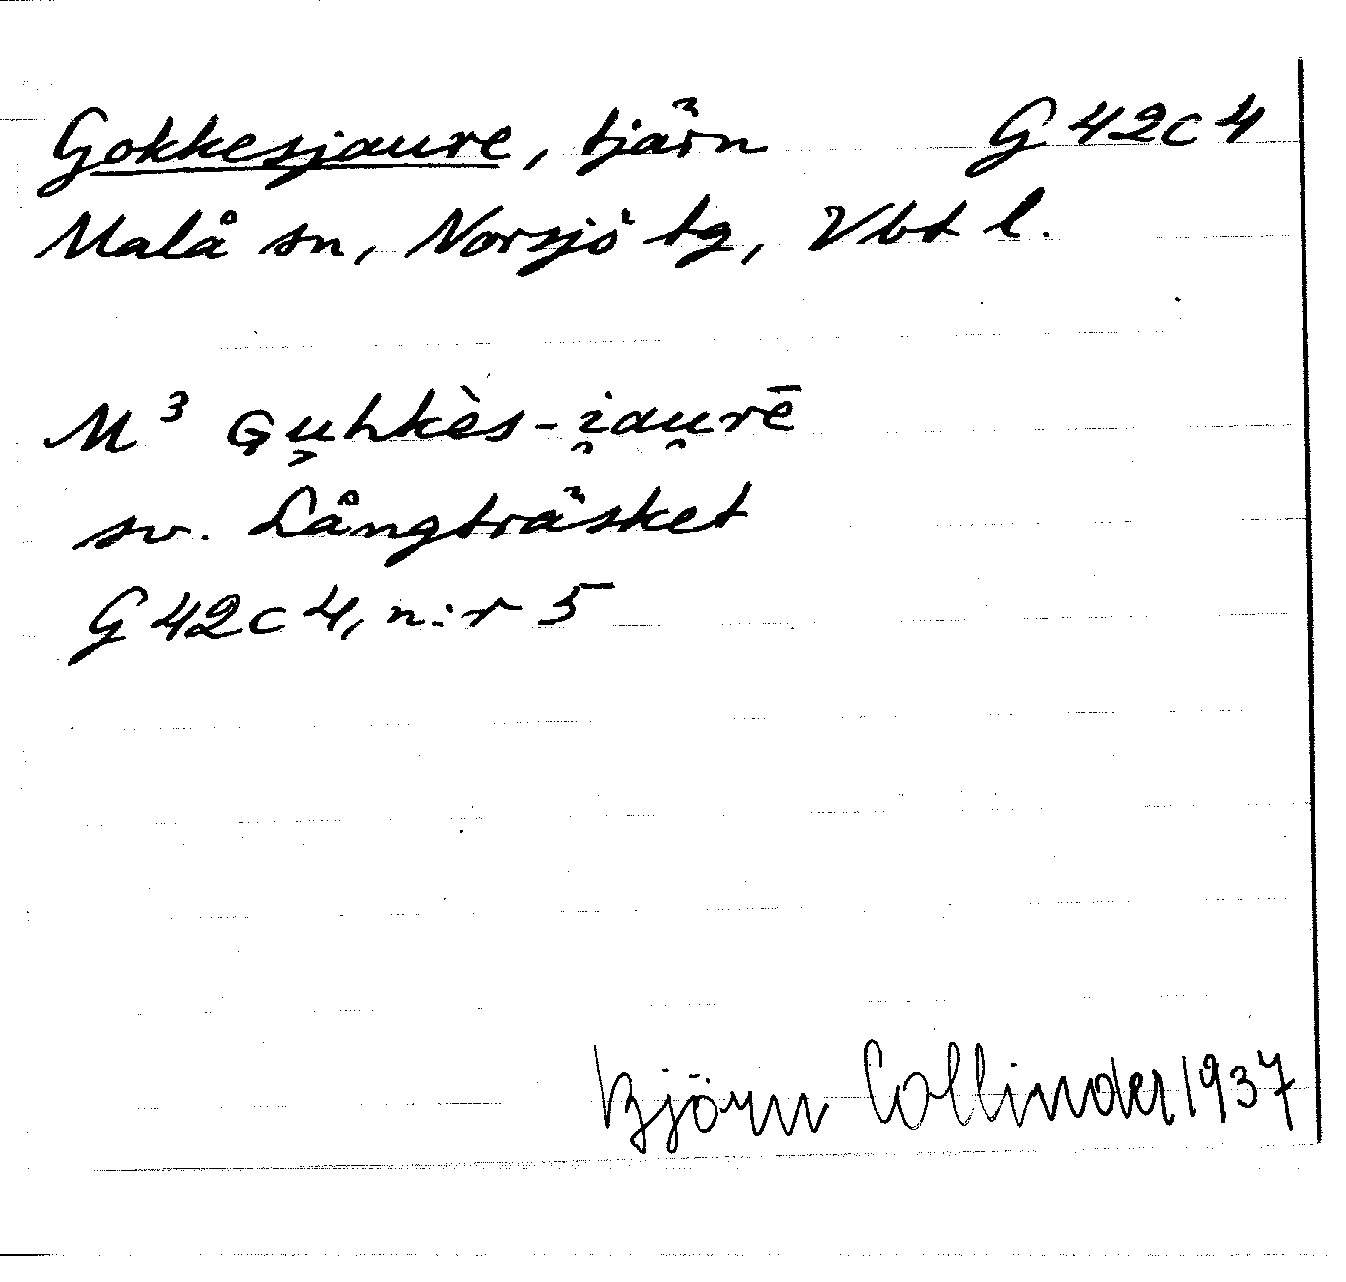 Gokkesjaure, tjärn G 42 c 4
Malå sn, Norsjö tg, Vbt l.
M³ Gu̬hkès-i̯au̯rē
sv. Långträsket
G 42 c 4, n:r 5
Björn Collinder 1937